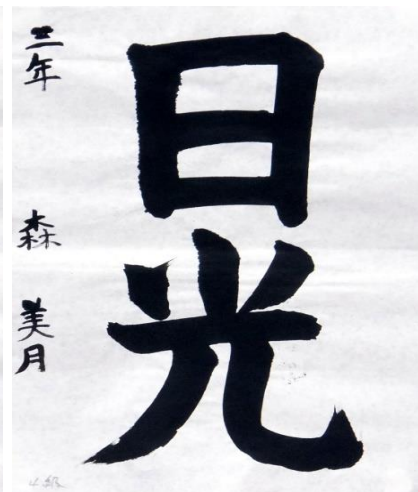 日光
三年 森 美月
4級